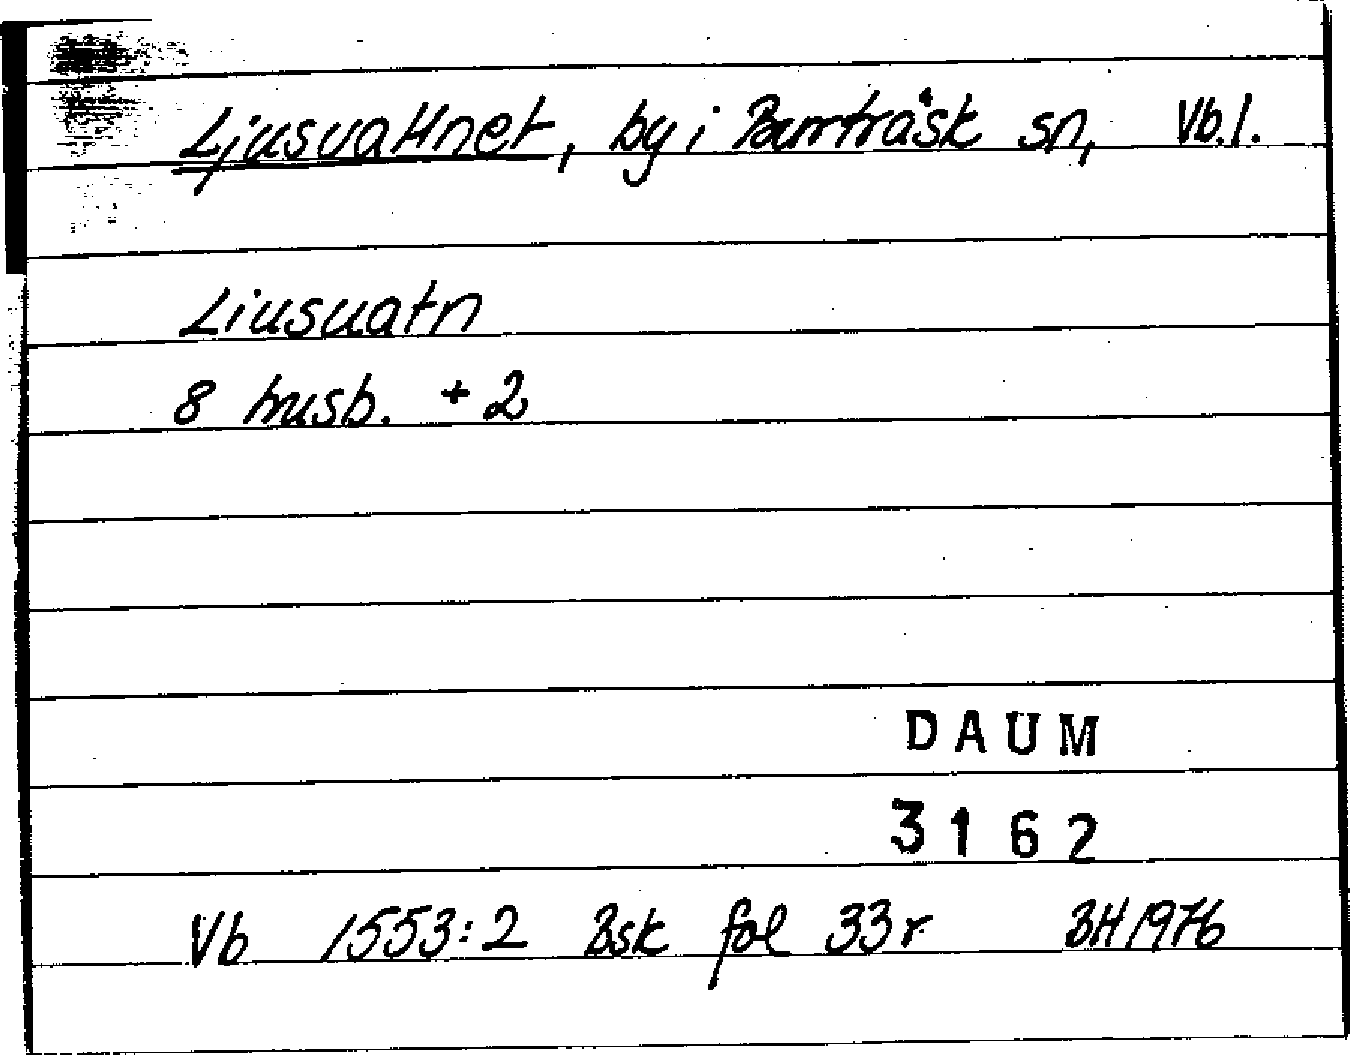 Ljusvattnet, by i Burträsk sn, Vb.l.
Liusuatn
8 husb. + 2
DAUM
3162
Vb 1553:2 Bsk fol 33r BH 1976